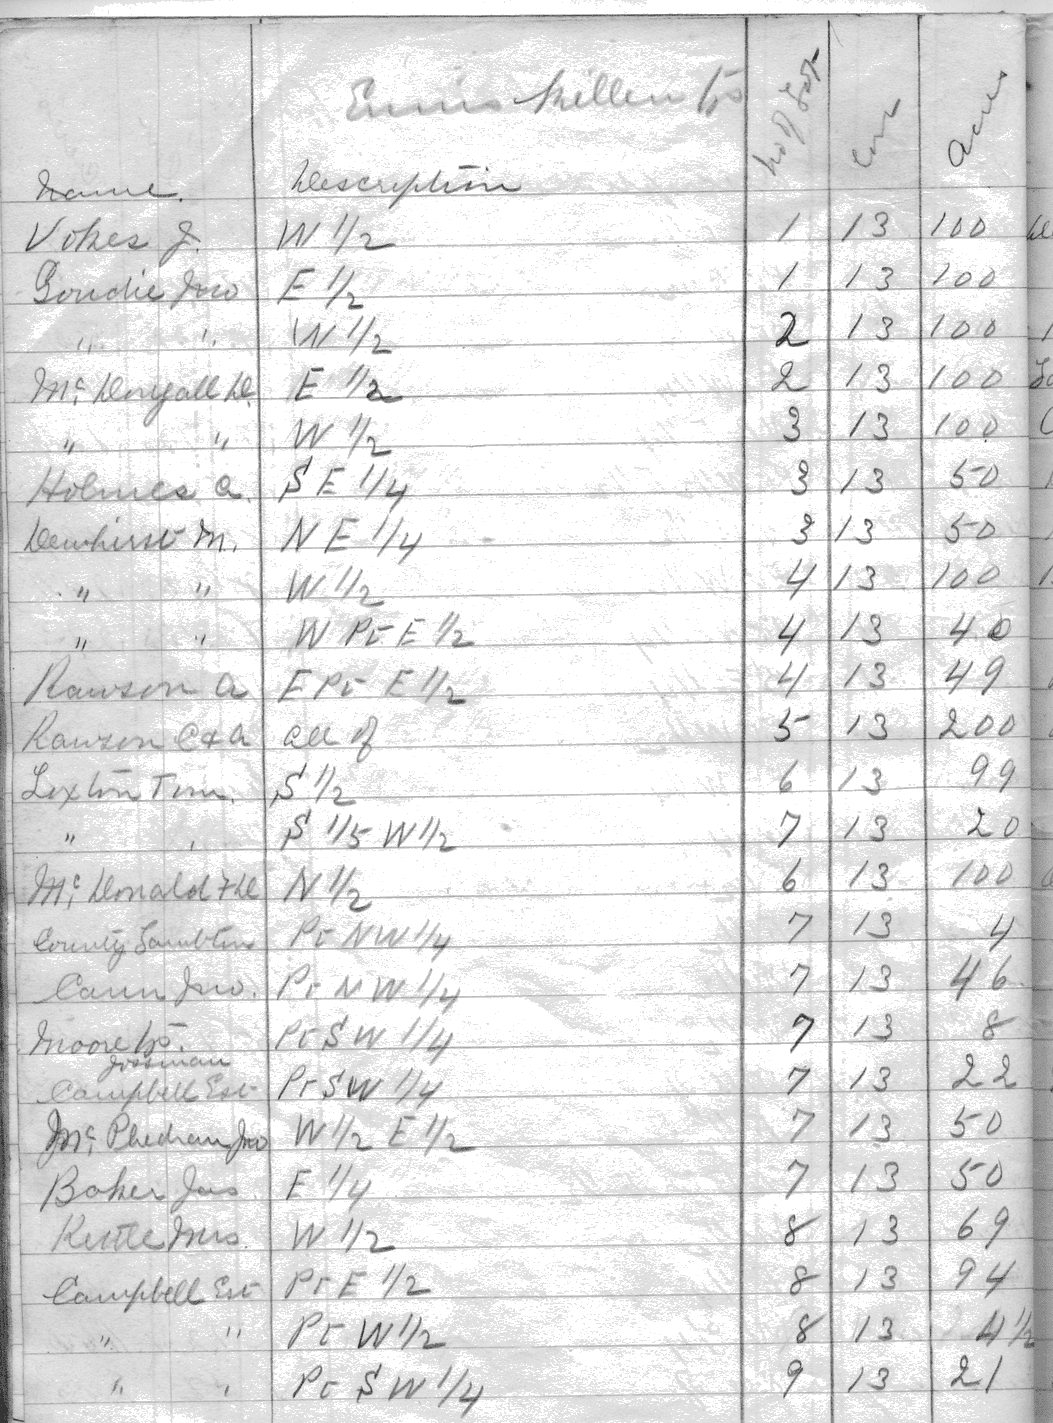 Enniskillen Tp
Name. Description No of Lot Con Acres
Vokes J. W 1/2 1 13 100
Goudie Jno E 1/2 1 13 100
" " W 1/2 2 13 100
Mc Dougall D. E 1/2 2 13 100
" " W 1/2 3 13 100
Holmes A. S E 1/4 3 13 50
Dewhirst M. N E 1/4 3 13 50
" " W 1/2 4 13 100
" " W Pt E 1/2 4 13 40
Rawson A E Pt E 1/2 4 13 49
Rawson C & A all of 5 13 200
Lexton Tom. S 1/2 6 13 99
" " S 1/5 W 1/2 7 13 20
Mc Donald F D N 1/2 6 13 100
County Lambton Pt N W 1/4 7 13 4
Cann Jno. Pt N W 1/4 7 13 46
Moore Pt S W 1/4 7 13 8
Campbell Est Pt S W 1/4 7 13 22
Mc Phedran Jno W 1/2 E 1/2 7 13 50
Baker Jas E 1/4 7 13 50
Kettle Mrs. W 1/2 8 13 69
Campbell Est Pt E 1/2 8 13 94
" " Pt W 1/2 8 13 4 1/2
" " Pt S W 1/4 9 13 21